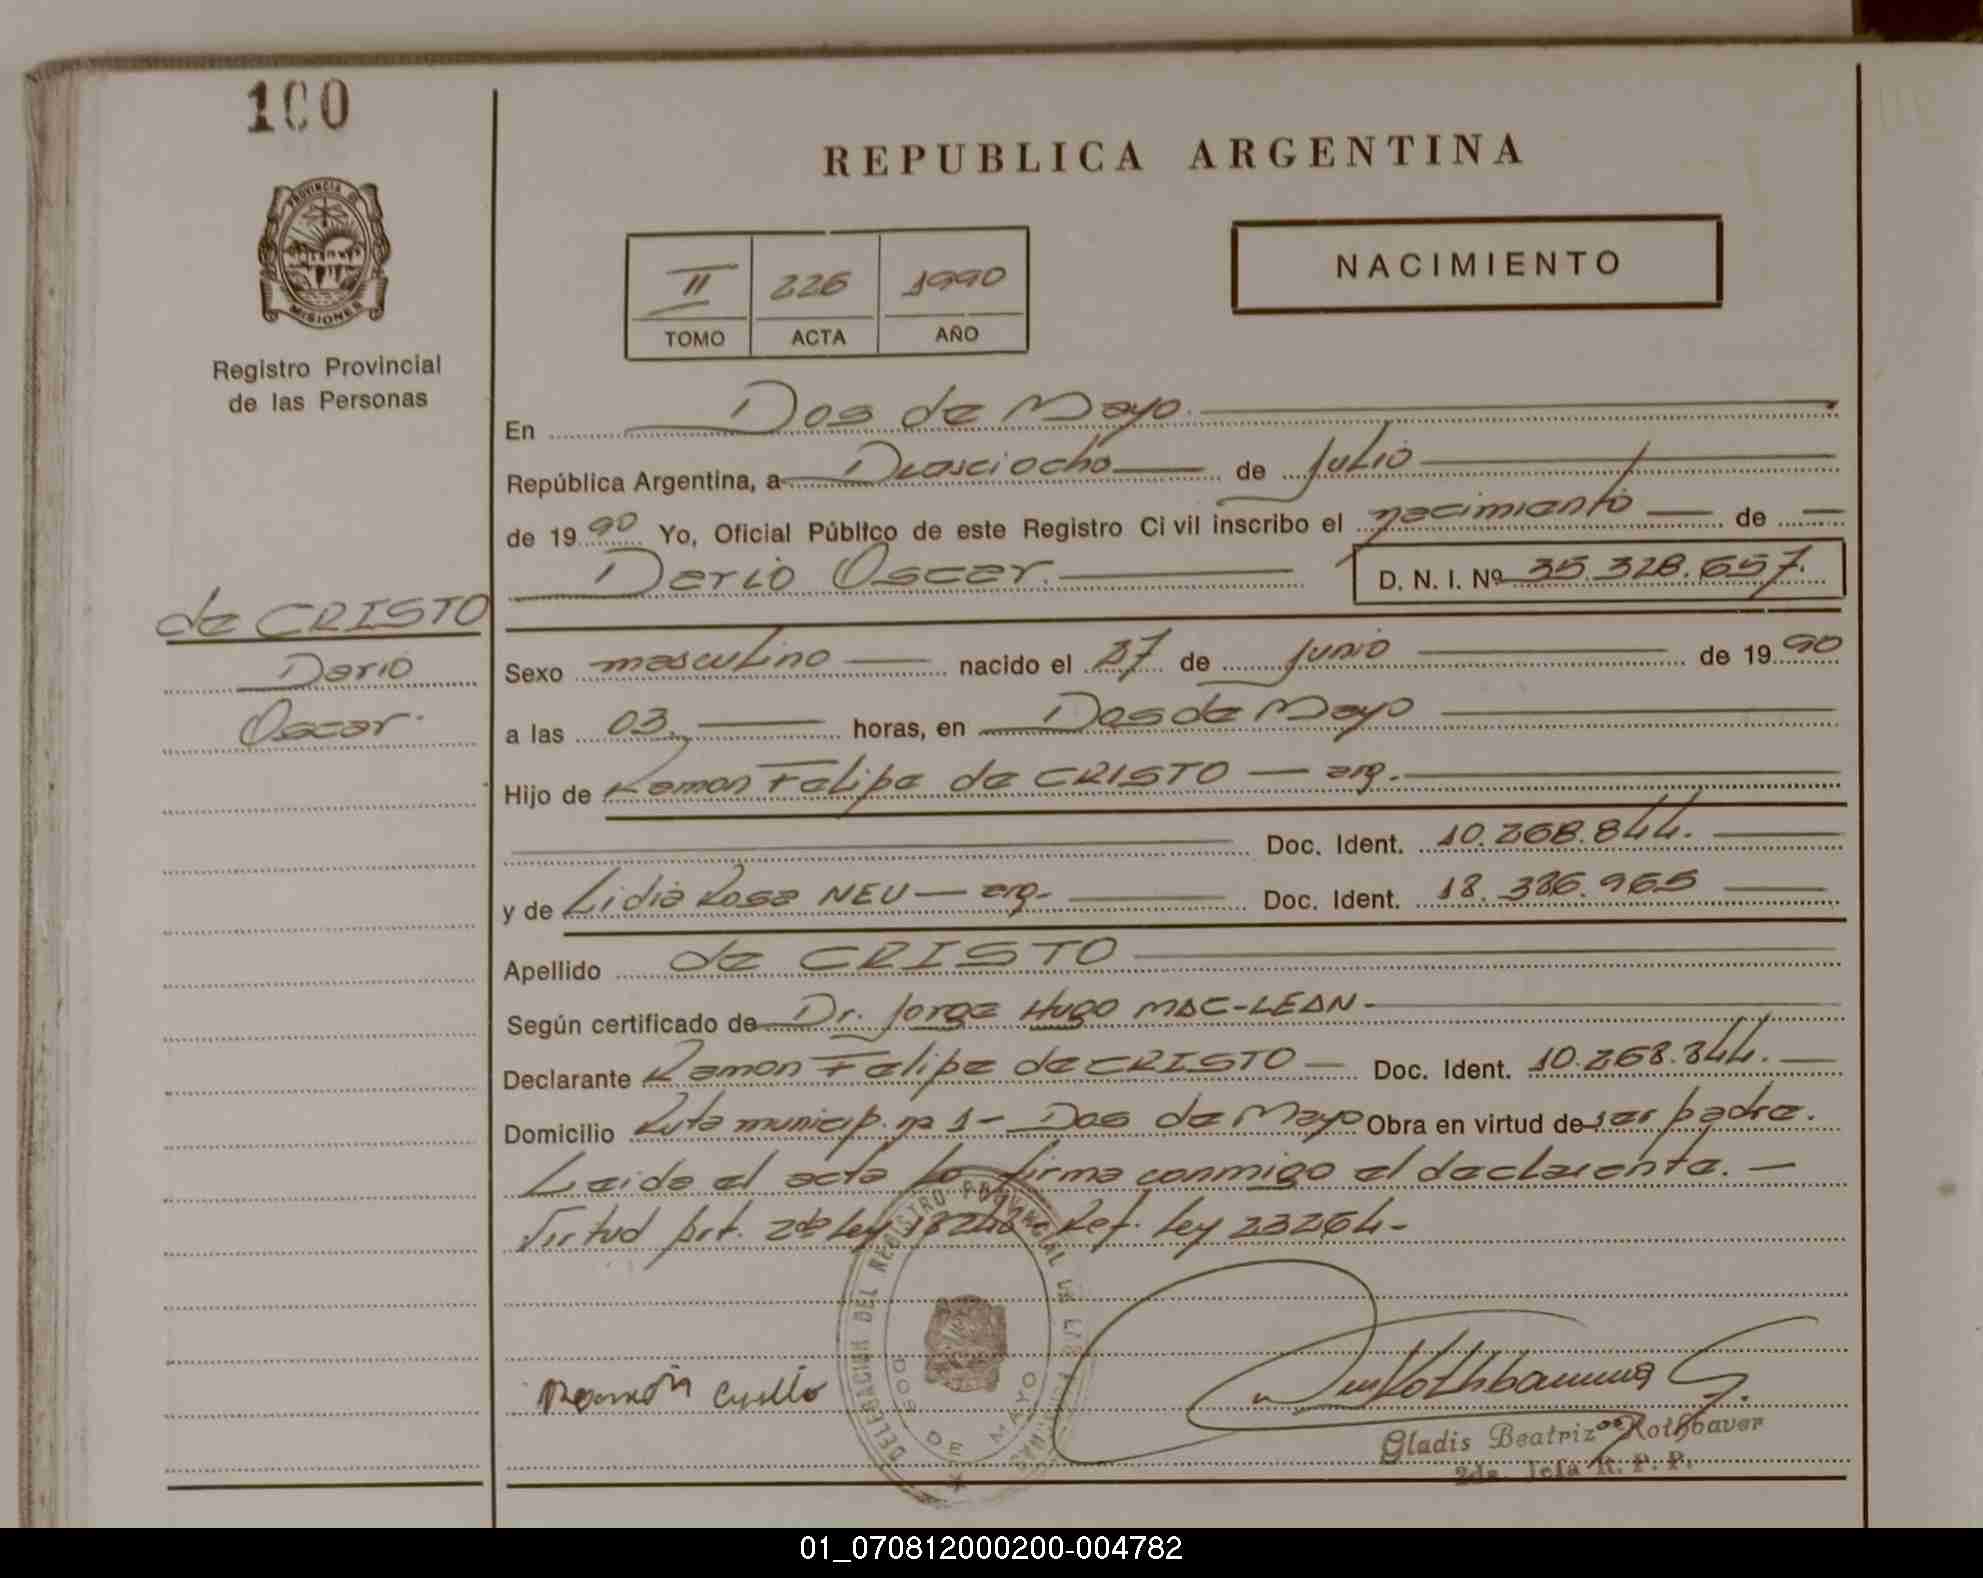 100
REPUBLICA ARGENTINA
PROVINCIA DE
MISIONES
Registro Provincial
de las Personas
II 226 1990
TOMO ACTA AÑO
NACIMIENTO
En Dos de Mayo.
República Argentina, a Dieciocho de Julio
de 1990 Yo, Oficial Público de este Registro Civil inscribo el nacimiento de
Dario Oscar. D. N. I. Nº 35.328.657.
de CRISTO
Dario
Oscar.
Sexo masculino nacido el 27 de Junio de 1990
a las 03 horas, en Dos de Mayo
Hijo de Ramon Felipe de CRISTO — arg.
Doc. Ident. 10.268.844.
y de Lidia Rosa NEU — arg. Doc. Ident. 18.336.965
Apellido de CRISTO
Según certificado de Dr. Jorge Hugo MAC-LEAN-
Declarante Ramon Felipe de CRISTO — Doc. Ident. 10.268.844.
Domicilio Ruta municip. nº 1 - Dos de Mayo Obra en virtud de ser padre.
Leida el acta la firma conmigo el declarante. —
Virtud Art. 2do Ley 18248 - Ref. Ley 23264-
DELEGACION DEL REGISTRO PROVINCIAL DE LAS PERSONAS
DOS DE MAYO
Ramón
Gladis Beatriz de Rothbauer
2da. Jefa R. P. P.
01_070812000200-004782